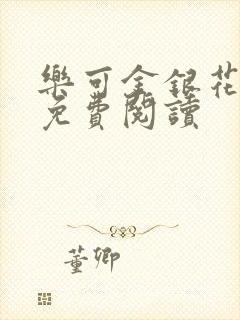 樂可金銀花
免費閱讀
董卿